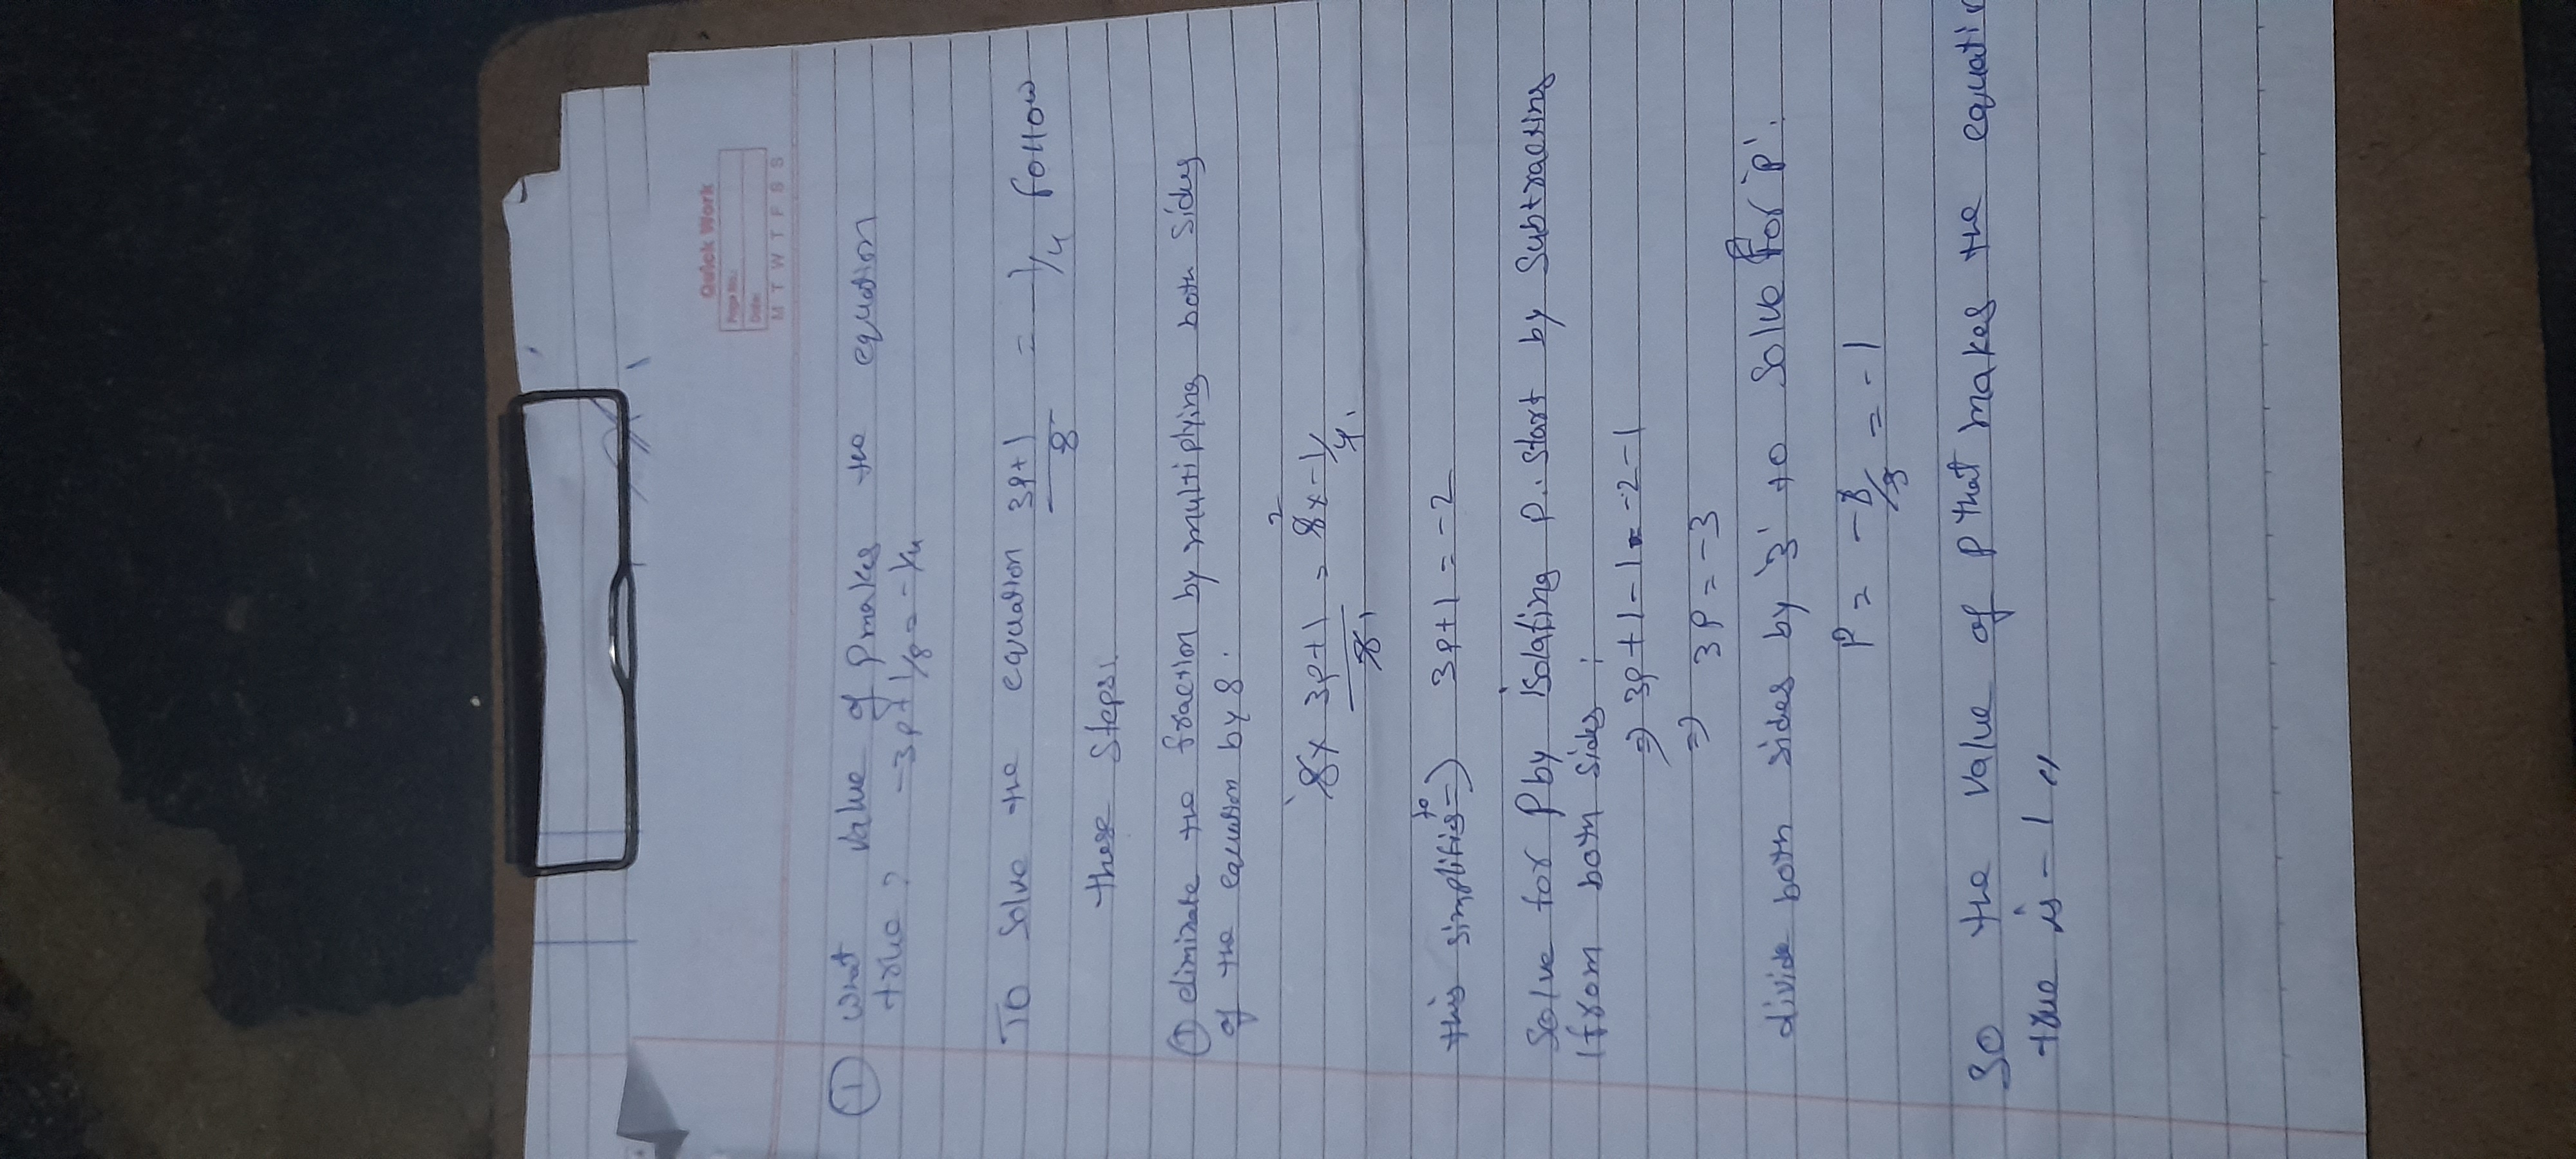 Quick Work
Page No.:
Date:
M T W T F S S
① what value of p makes the equation
true? -3p+1/8 = -1/4
To solve the equation 3p+1/8 = -1/4 follow
these steps:
① eliminate the fraction by multiplying both sides
of the equation by 8.
8 x 3p+1/8 = 8 x -1/4.
this simplifies to => 3p+1 = -2
Solve for p by isolating p. start by Subtracting
1 from both sides;
=> 3p+1-1 = -2-1
=> 3p = -3
divide both sides by '3' to solve for 'p'.
p = -3/3 = -1
So the value of p that makes the equation
true is -1 //